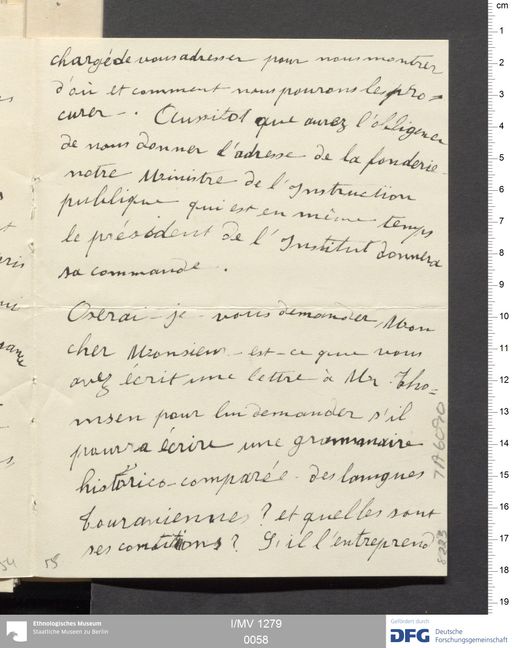 chargé de vous adresser pour nous montrer
d'où et comment nous pourons les pro=
curer -. Aussitot que aurez l'obligence
de nous donner l'adresse de la fonderie
notre Ministre de l'Instruction
publique qui est en même temps
le président de l'Institut donnera
sa commande.
Oserai-je-vous demander Mon
cher Monsieur - est-ce que vous
avez écrit une lettre à Mr. Tho=
msen pour lui demander s'il
pourra écrire une grammaire
historico-comparée des langues
touraniennes? et quelles sont
ses conditions? S'il l'entreprend
55
8223
7A6090
cm
1
2
3
4
5
6
7
8
9
10
11
12
13
14
15
16
17
18
19
Ethnologisches Museum
Staatliche Museen zu Berlin
I/MV 1279
0058
Gefördert durch
DFG Deutsche
Forschungsgemeinschaft